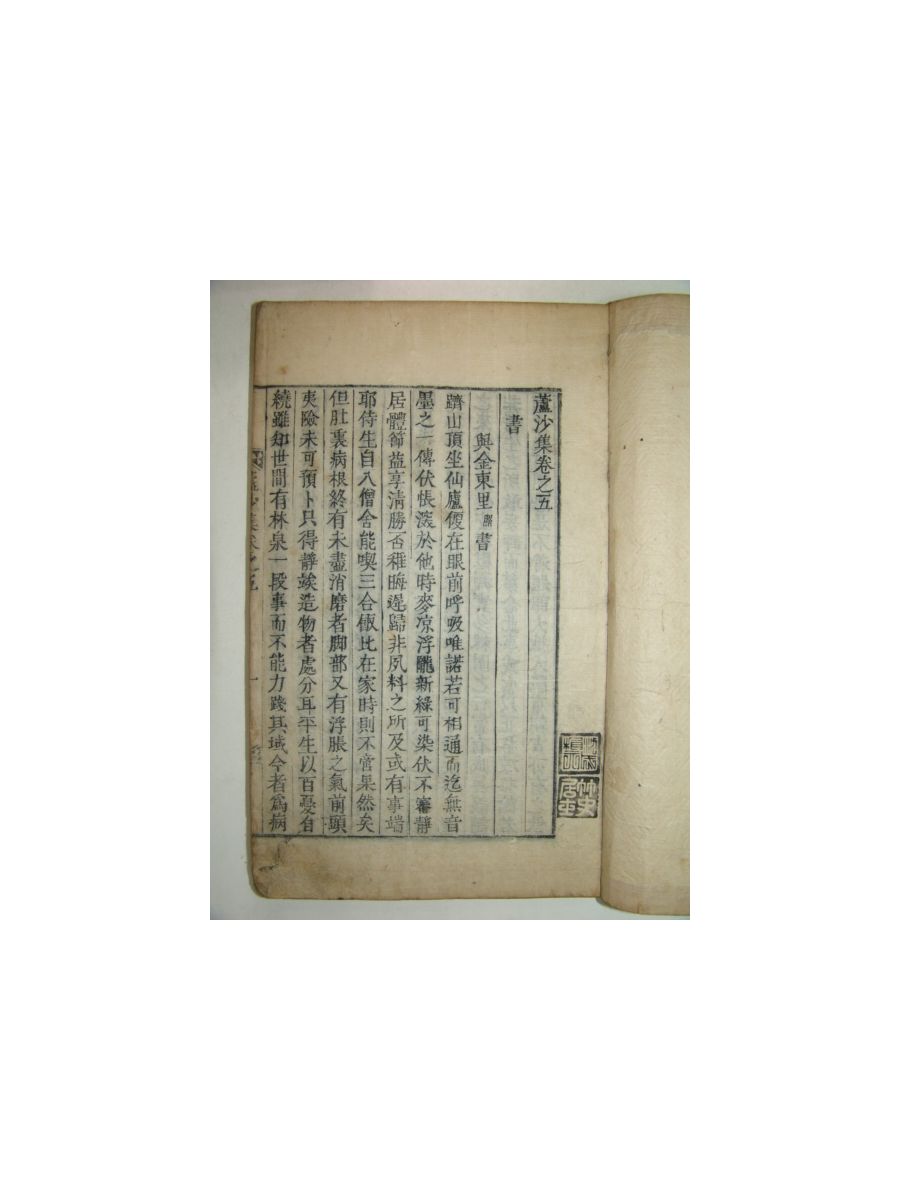 蘆沙集卷之五
書
與金東里 書
躋山頂坐仙廬僾在眼前呼吸唯諾若可相通而迄無音
墨之一傳伏悵深於他時麥凉浮隴新綠可染伏不審靜
居體節益享淸勝否稚晦遲歸非夙料之所及或有事端
耶侍生自入僧舍能喫三合飯比在家時則不啻果然矣
但肚裏病根終有未盡消磨者脚部又有浮脹之氣前頭
夷險未可預卜只得靜竢造物者處分耳平生以百憂自
繞雖知世間有林泉一段事而不能力踐其域今者爲病
蘆沙集卷之五
一
竹史